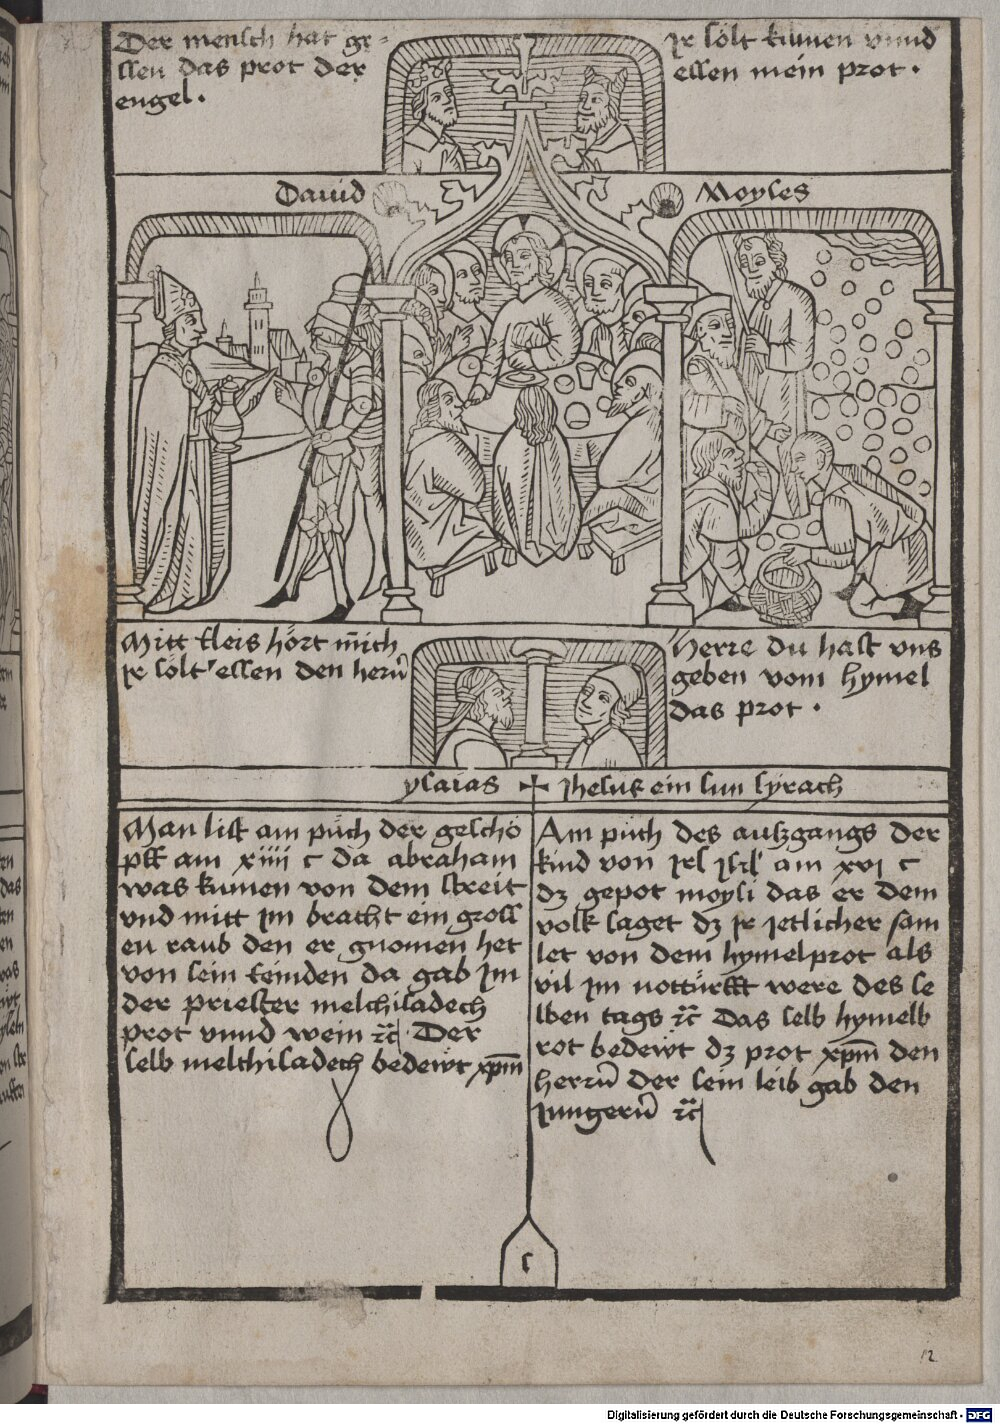 Der mensch hat ge-
ssen das prot der
engel.
Jr sölt kumen vnnd
essen mein prot.
Dauid
Moyses
Mitt fleis hört mich
Jr sölt essen den herñ
Herre du hast vns
geben vom hymel
das prot.
ysaias
Jhesus ein sun syrach
Man list am půch der geschö
pff am xiiii c da abraham
was kumen von dem streit
vnd mitt jm bracht ein gross
en raub den er gnomen het
von sein feinden da gab jm
der priester melchisadech
prot vnnd wein ꝛc̃ Der
selb melchisadech bedewt xp̄m
Am půch des auszgangs der
kind von jsrl am xvj c
dz gepot moysi das er dem
volk saget dz jr jetlicher sam
let von dem hymelprot als
vil jm nottürfft were des se
lben tags ꝛc̃ Das selb hymelb
rot bedewt dz prot xp̄m den
herrñ der sein leib gab den
jungerñ ꝛc̃
s
12
Digitalisierung gefördert durch die Deutsche Forschungsgemeinschaft - DFG